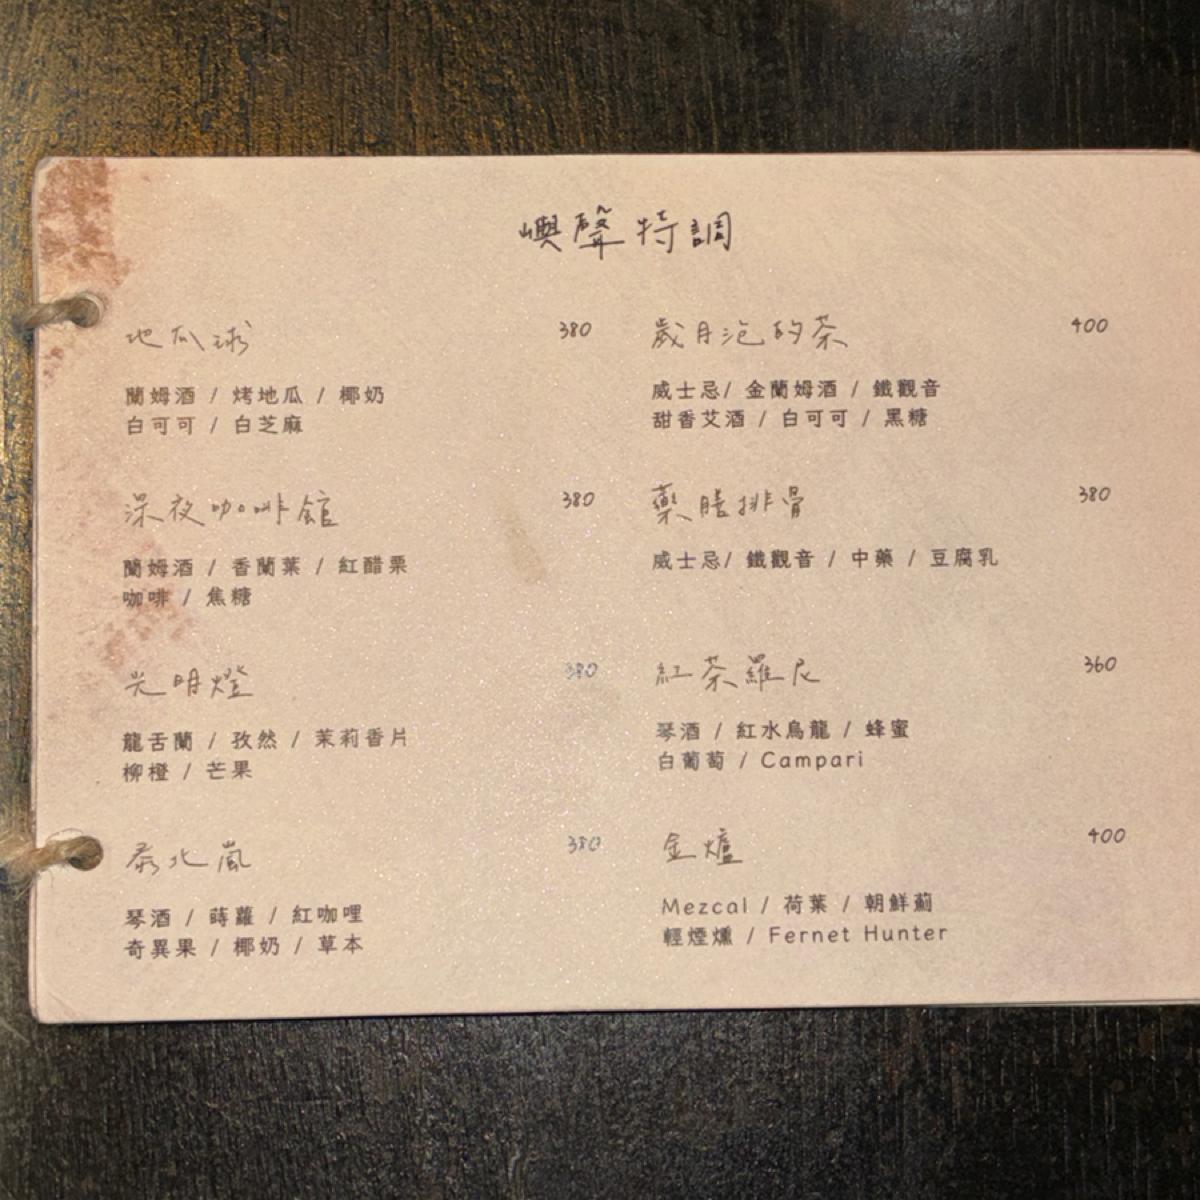 嶼聲特調
地瓜球 380
蘭姆酒 / 烤地瓜 / 椰奶
白可可 / 白芝麻
深夜咖啡館 380
蘭姆酒 / 香蘭葉 / 紅醋栗
咖啡 / 焦糖
光明燈 380
龍舌蘭 / 孜然 / 茉莉香片
柳橙 / 芒果
泰北嵐 380
琴酒 / 蒔蘿 / 紅咖哩
奇異果 / 椰奶 / 草本
歲月泡的茶 400
威士忌/ 金蘭姆酒 / 鐵觀音
甜香艾酒 / 白可可 / 黑糖
藥膳排骨 380
威士忌/ 鐵觀音 / 中藥 / 豆腐乳
紅茶羅尼 360
琴酒 / 紅水烏龍 / 蜂蜜
白葡萄 / Campari
金爐 400
Mezcal / 荷葉 / 朝鮮薊
輕煙燻 / Fernet Hunter